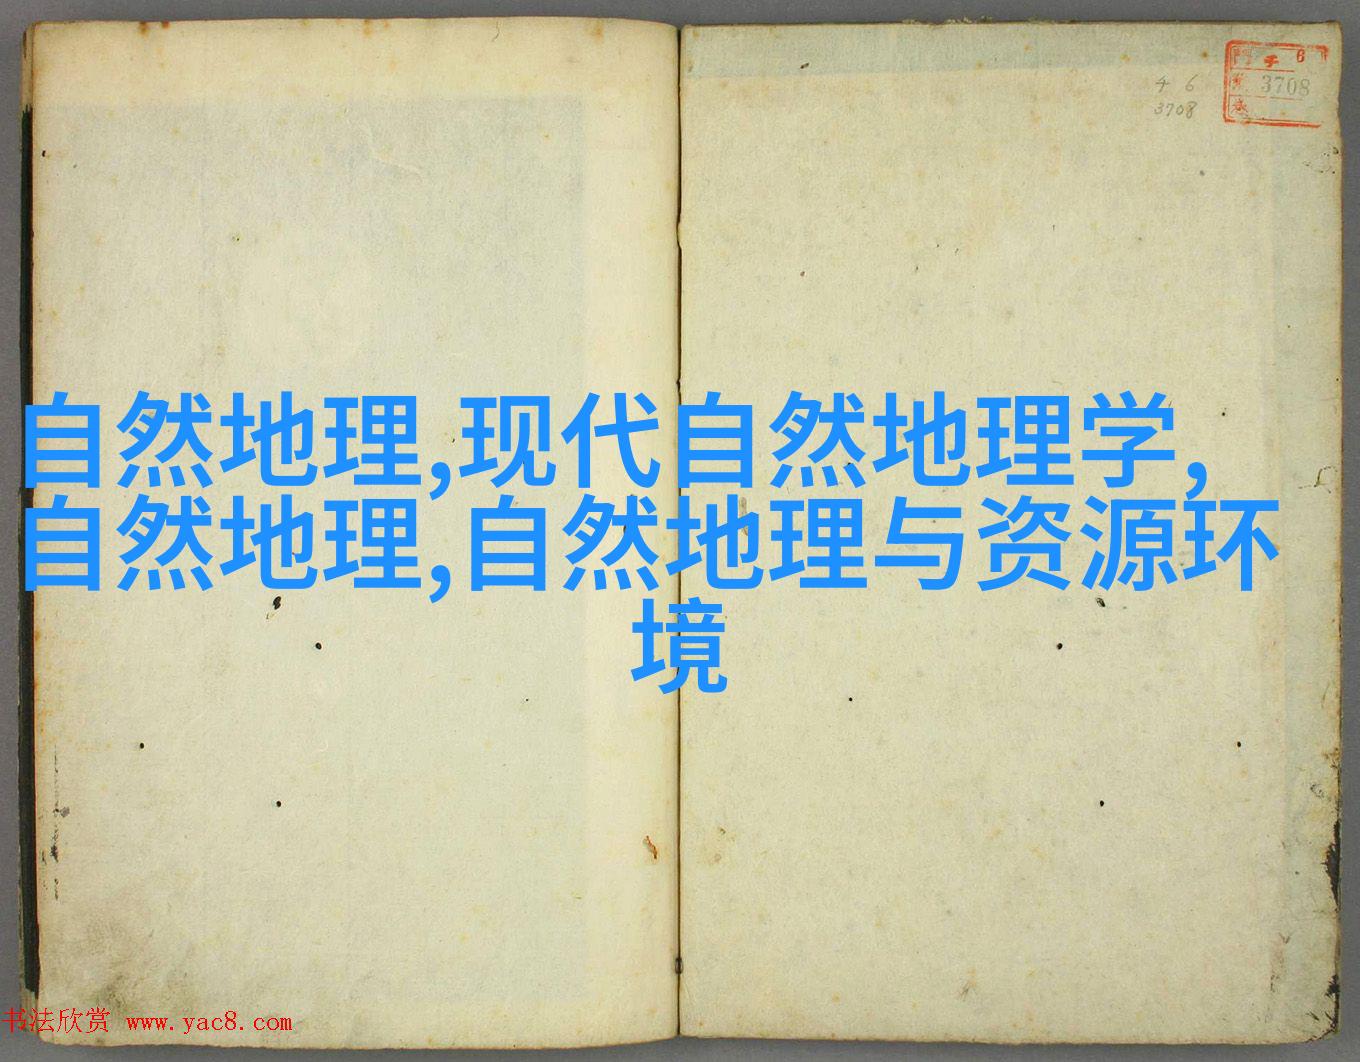 4 6
3708
6
3708
自然地理,现代自然地理学,
自然地理,自然地理与资源环
境
书法欣赏 www.yac8.com